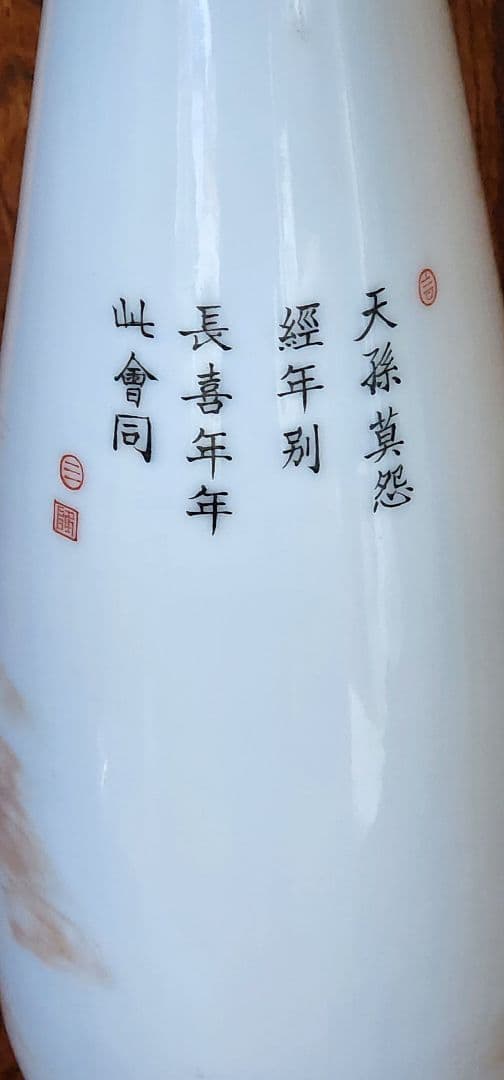 天孫莫怨
經年别
長喜年年
此會同